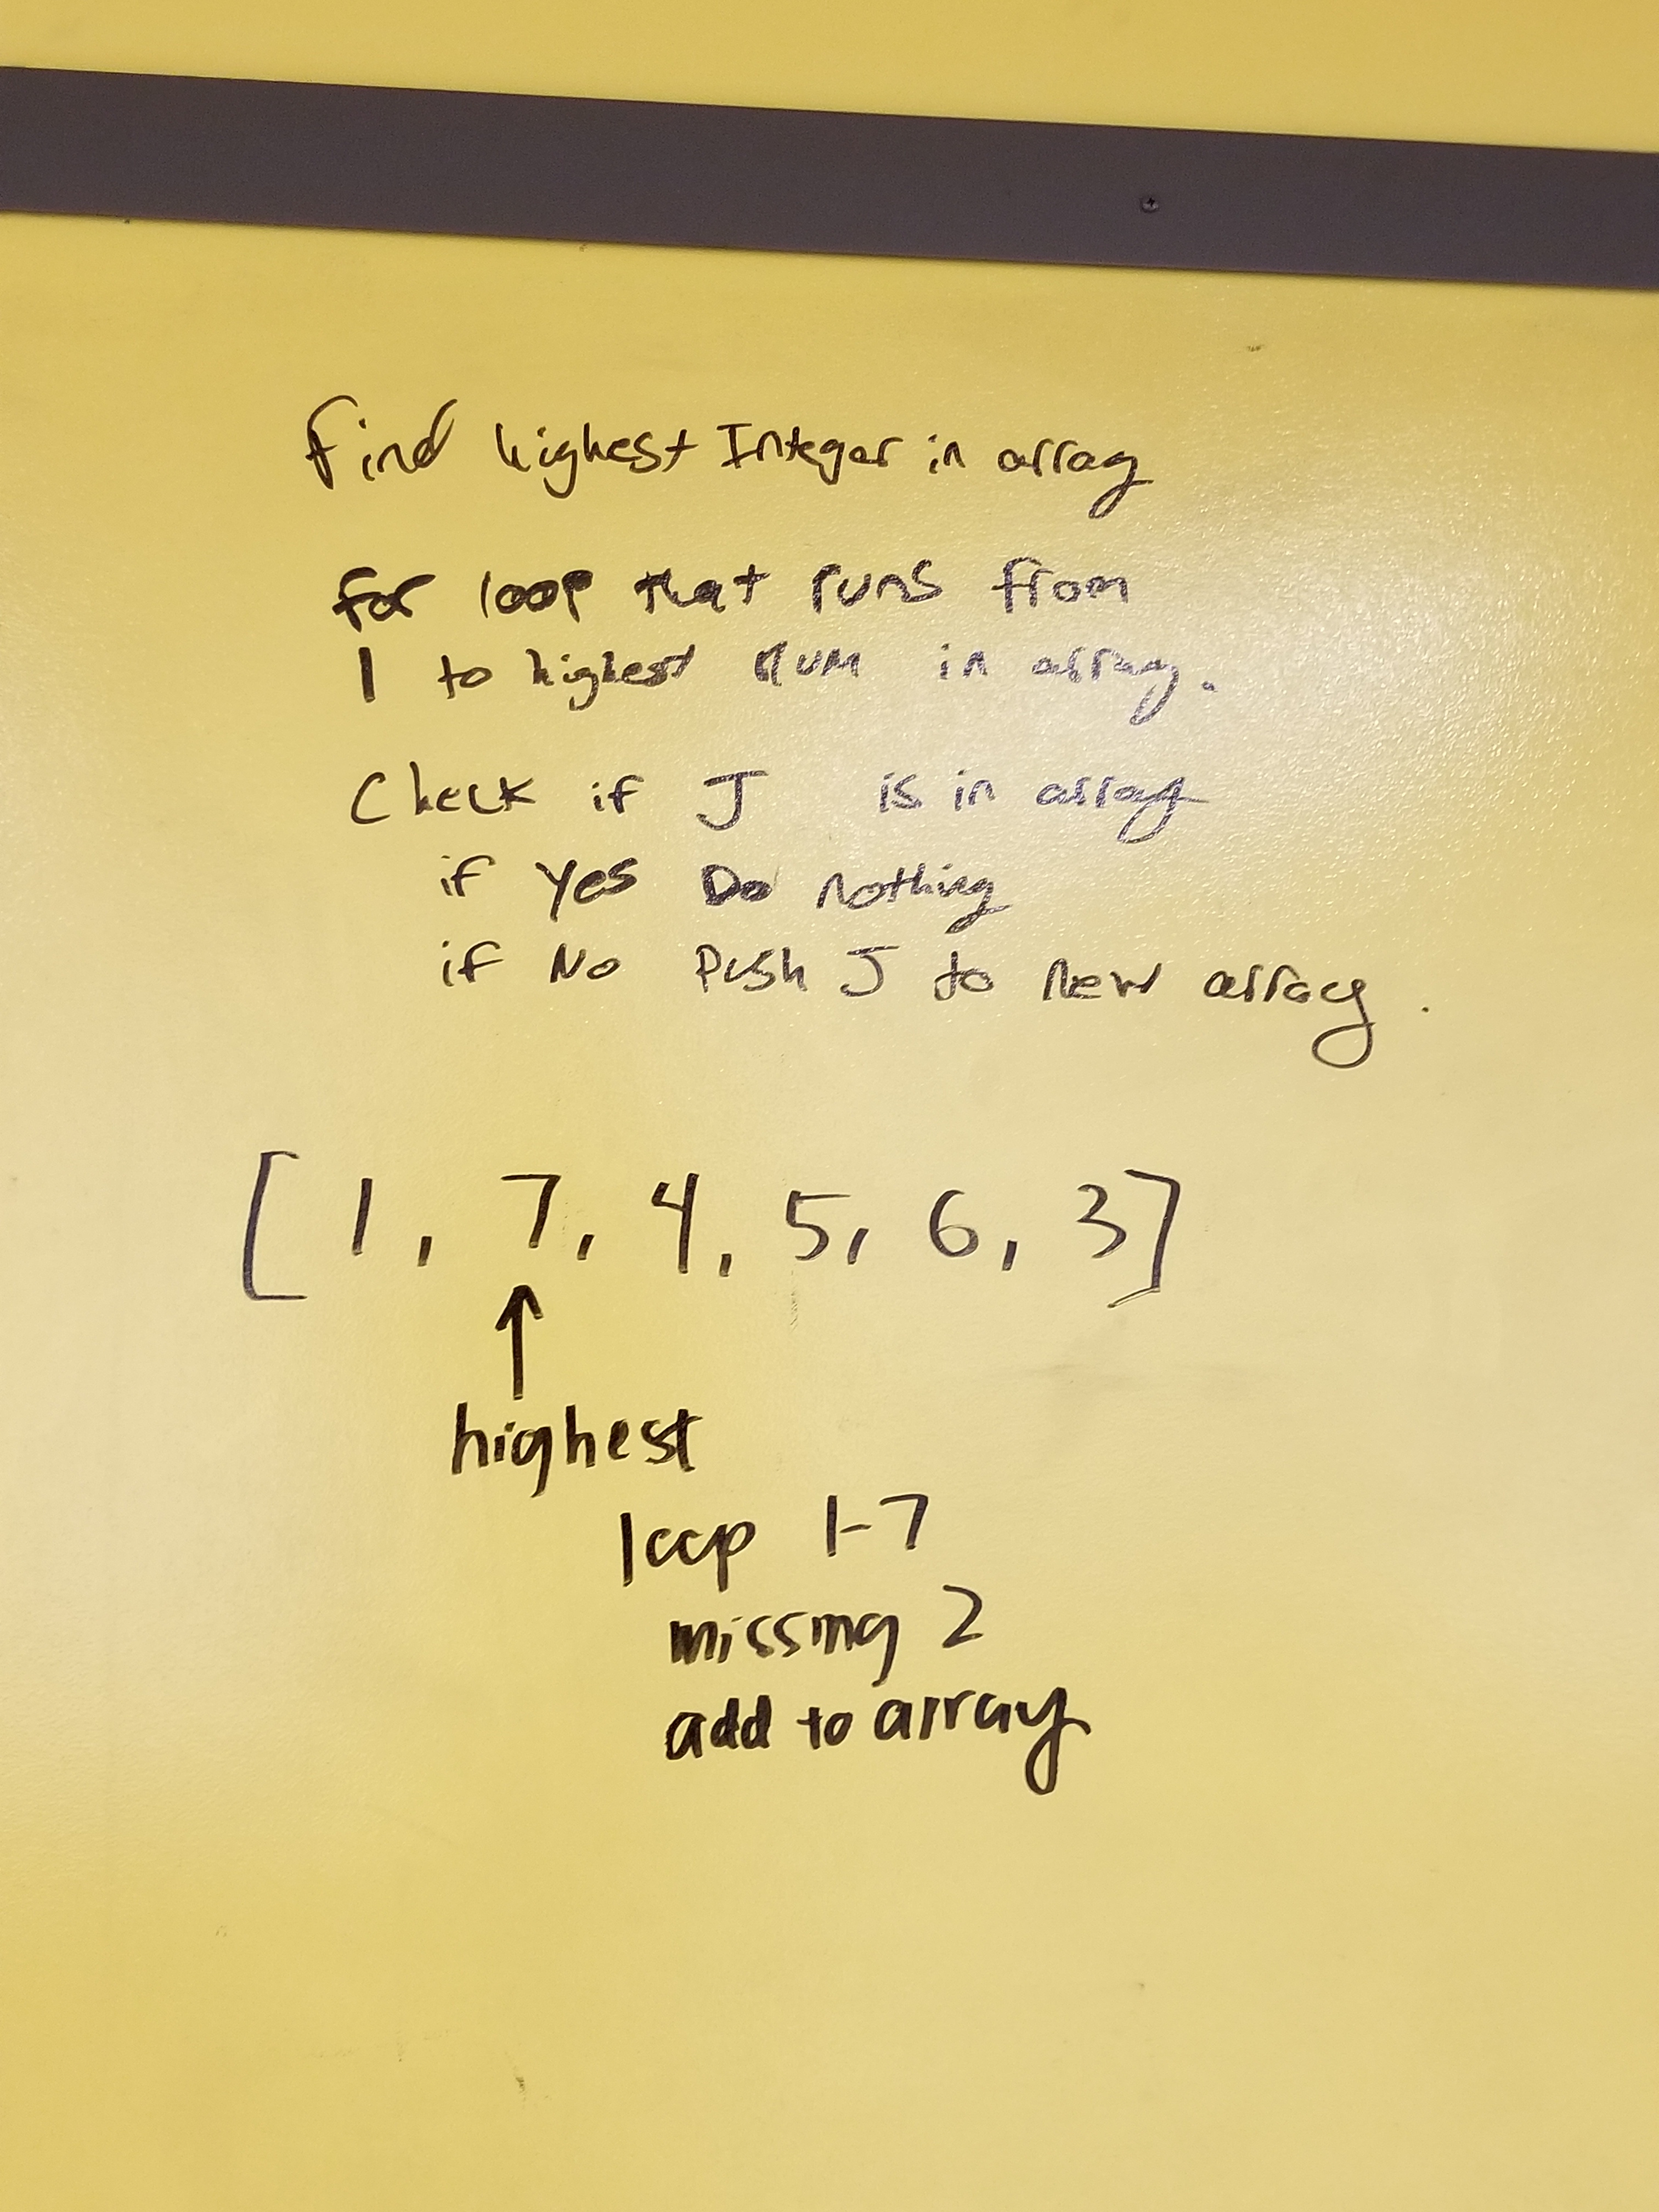 Find highest Integer in array
for loop that runs from
1 to highest num in array.
Check if J is in array
if yes Do nothing
if No Push J to new array.
[1, 7, 4, 5, 6, 3]
↑
highest
loop 1-7
missing 2
add to array